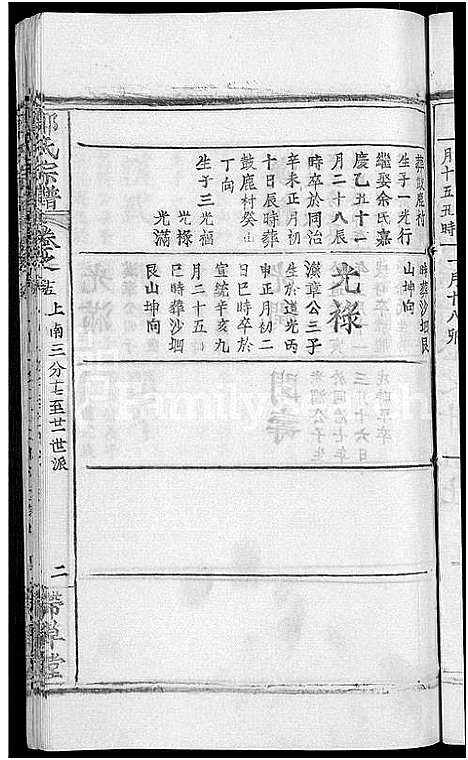 月十五丑時
葬鼓鹿村
生子一光行
繼娶余氏嘉
慶乙丑十一
月二十八辰
時卒於同治
辛未正月初
十日辰時葬
鼓鹿村癸山
丁向
生子三光福
光祿
光滿
時葬沙堌艮
山坤向
光祿
滋章公三子
生於道光丙
申正月初二
日巳時卒於
宣統辛亥九
月二十五
巳時葬沙堌
艮山坤向
鄭氏宗譜
卷之五
上南三分十七至廿一世派
二
帶草堂
FamilySearch